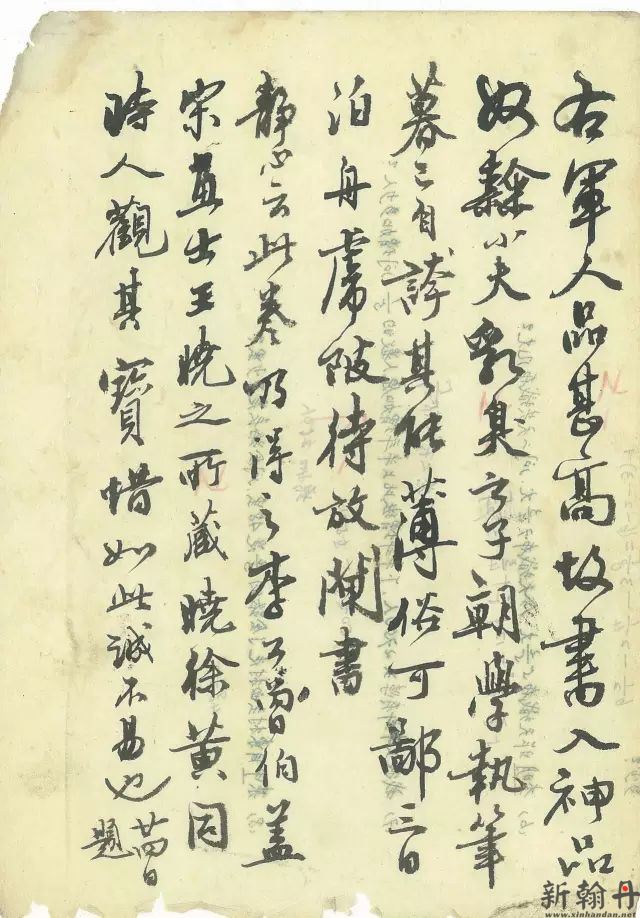 右軍人品甚高故書入神品
奴隸小夫乳臭之子朝學執筆
暮已自誇其能薄俗可鄙三日
泊舟虎陂待放閘書
靜心云此卷乃得之李公曾伯蓋
宋畫士王曉之所藏曉徐黃同
時人觀其寶惜如此誠不易也廿四日
題
新翰丹
www.xinhandan.net